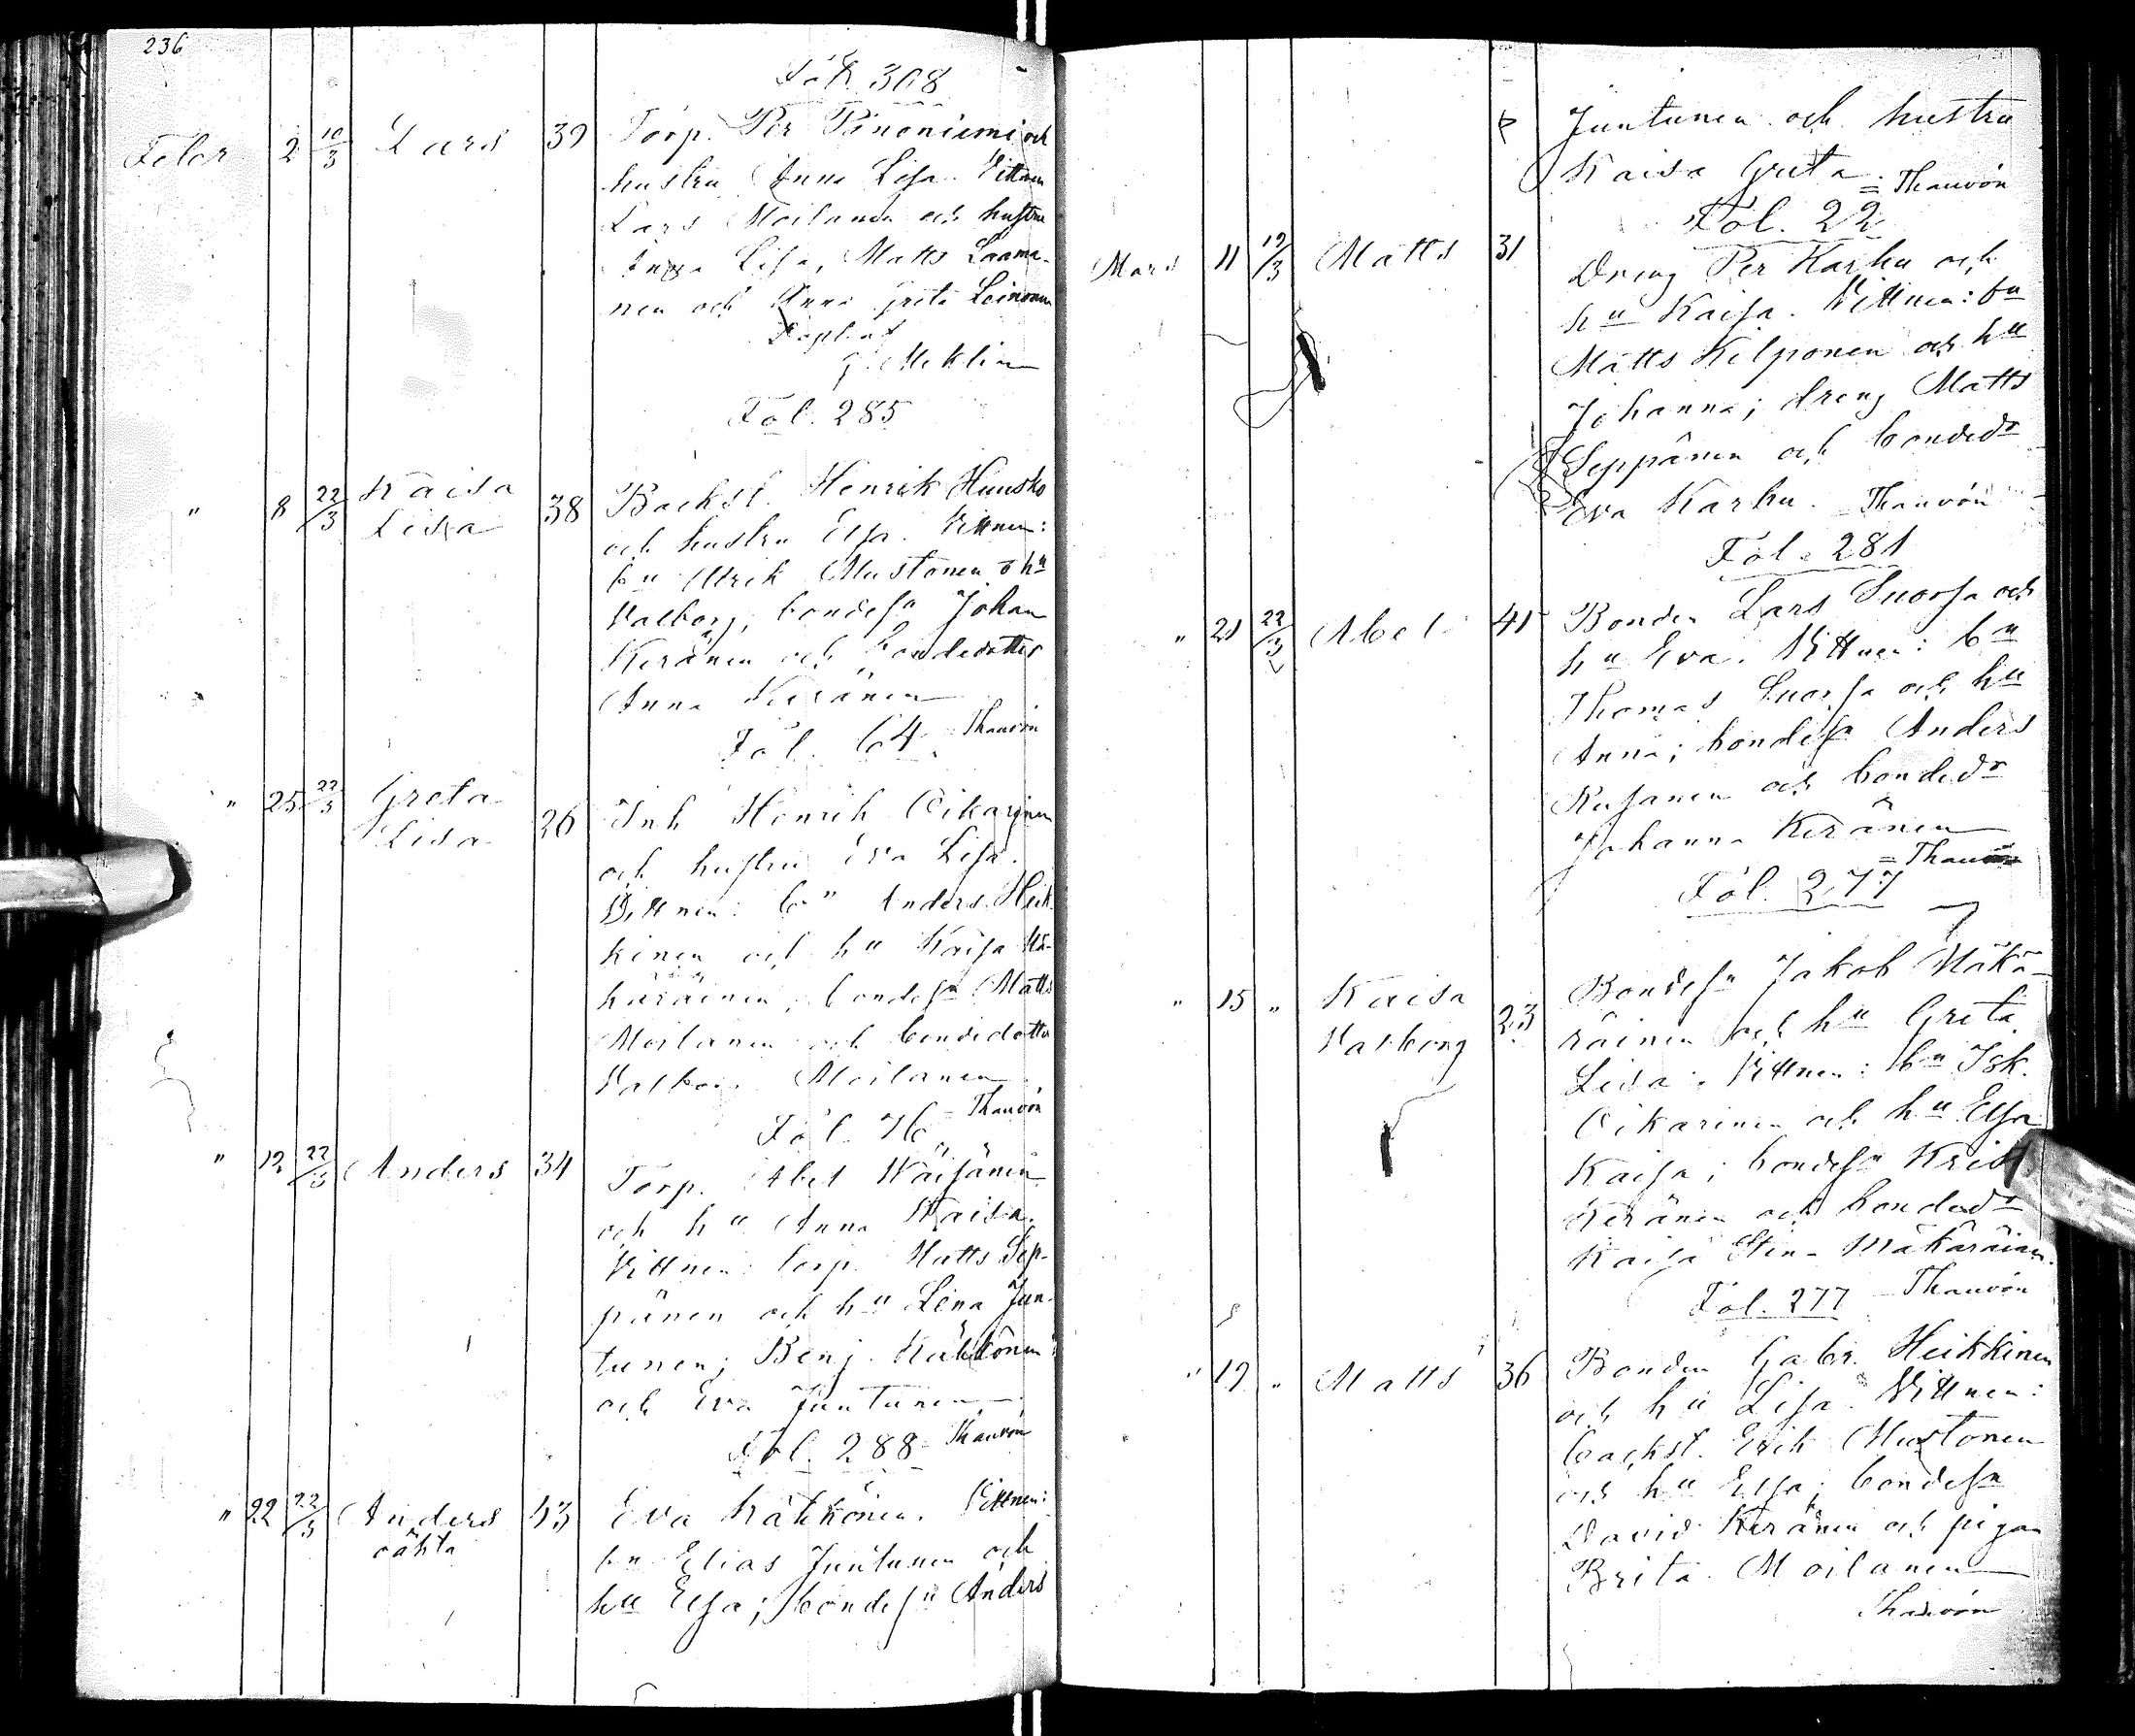 236
Föl. 308
Febr 2 10/3 Lars 39 Torp. Per Pänöniemi och
hustru Anna Lisa. Vittnen
Lars Moilanen och hustru
Anna Lisa, Matts Laama-
nen och Anna Greta Leinonen
Döpt af
G. Meklin
Föl. 285
" 8 22/3 Kaisa Lisa 38 Backst. Henrik Huusko
och hustru Elsa. Vittnen:
bn Erik Mustonen o hu
Valborg; bondesn Johan
Keränen och bondedotter
Anna Keränen
Föl. 64. Thauvón
" 25 22/3 Greta Lisa 26 Inh Henrik Oikarinen
och hustru Eva Lisa.
Vittnen: bn Anders Heik-
kinen och hu Kaisa Mä-
käräinen; bondesn Matts
Moilanen och bondedotter
Valborg Moilanen
Föl. 76 Thauvón
" 12 22/3 Anders 34 Torp. Abel Väisänen
och hu Anna Kaisa.
Vittnen: torp. Matts Sep-
pänen och hu Lena Jun-
tunen; Benj. Kähkönen
och Eva Juntunen
Föl. 288 Thauvón
" 22 22/3 Anders oäkta 43 Eva Kähkönen. Vittnen:
bn Elias Juntunen och
hu Elsa; bondesn Anders
Juntunen och hustru
Kaisa Greta. = Thauvón
Föl. 22
Mars 11 19/3 Matts 31 Dreng Per Karhu och
hu Kaisa. Vittnen: bn
Matts Kilponen och hu
Johanna; dreng Matts
Seppänen och bondedr
Eva Karhu. = Thauvón
Föl. 281
" 21 22/3 Abel 41 Bonden Lars Suorsa och
hu Eva. Vittnen: bn
Thomas Suorsa och hu
Anna; bondesn Anders
Rusanen och bondedr
Johanna Keränen
= Thauvón
Föl. 277
" 15 " Kaisa Valborg 23 Bondesn Jakob Mäkä-
räinen och hu Greta
Lisa. Vittnen: bn Isk.
Oikarinen och hu Elsa
Kaisa; bondesn Krist
Keränen och bondedr
Kaisa Stina Mäkäräinen.
Föl. 277 Thauvón
" 19 " Matts 36 Bonden Gabr. Heikkinen
och hu Lisa. Vittnen:
backst. Erik Mustonen
och hu Elsa; bondesn
David Keränen och pigan
Brita Moilanen
Thauvón